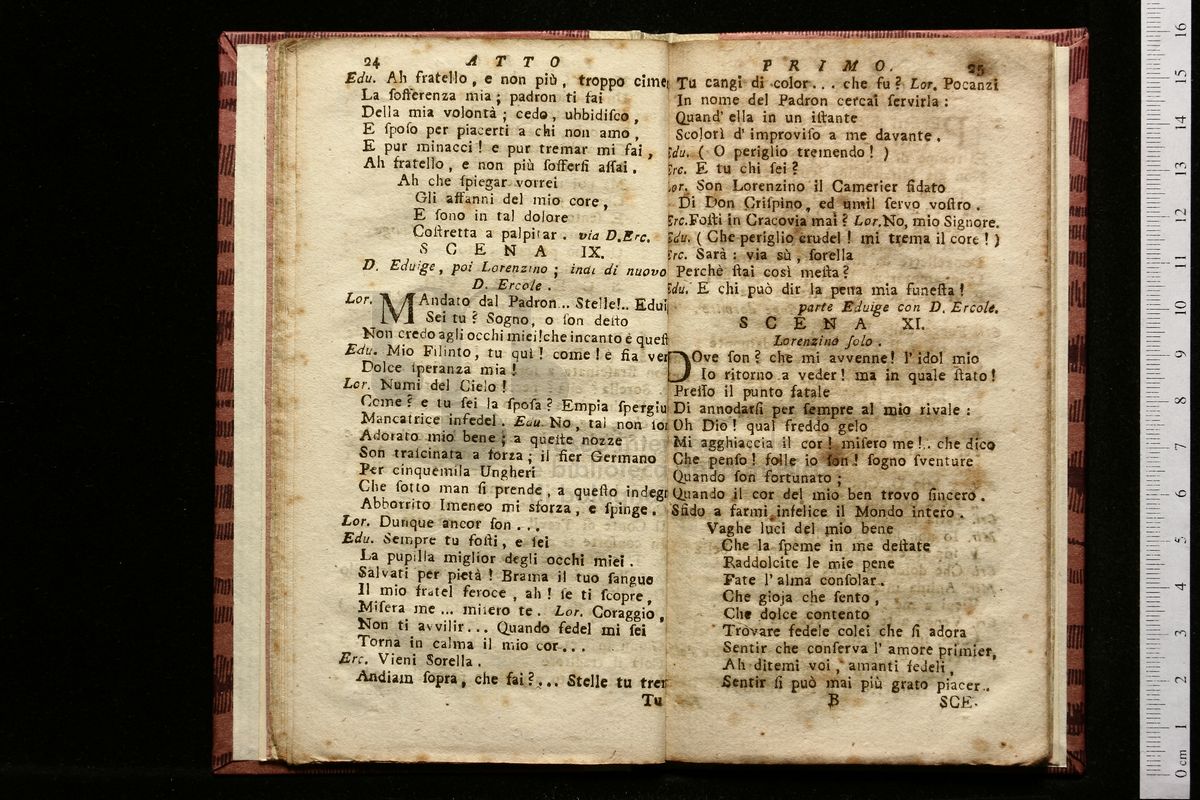 24 ATTO
Edu. Ah fratello, e non più, troppo cime
La ſofferenza mia; padron ti fai
Della mia volontà; cedo, ubbidiſco,
E ſpoſo per piacerti a chi non amo,
E pur minacci! e pur tremar mi fai,
Ah fratello, e non più ſofferſi aſſai.
Ah che ſpiegar vorrei
Gli affanni del mio core,
E ſono in tal dolore
Coſtretta a palpitar. via D.Erc.
SCENA IX.
D. Eduige, poi Lorenzino; indi di nuovo
D. Ercole.
Lor. MAndato dal Padron.. Stelle!.. Edui
Sei tu? Sogno, o ſon deſto
Non credo agli occhi miei! che incanto è queſt
Edu. Mio Filinto, tu quì! come! è fia ver
Dolce ſperanza mia!
Lor. Numi del Cielo!
Come? e tu ſei la ſpoſa? Empia ſpergiu
Mancatrice infedel. Edu. No, tal non ſon
Adorato mio bene; a queſte nozze
Son traſcinata a forza; il fier Germano
Per cinquemila Ungheri
Che ſotto man ſi prende, a queſto indegn
Abborrito Imeneo mi sforza, e ſpinge.
Lor. Dunque ancor ſon...
Edu. Sempre tu foſti, e ſei
La pupilla miglior degli occhi miei.
Salvati per pietà! Brama il tuo ſangue
Il mio fratel feroce, ah! ſe ti ſcopre,
Miſera me... miſero te. Lor. Coraggio,
Non ti avvilir... Quando fedel mi ſei
Torna in calma il mio cor...
Erc. Vieni Sorella.
Andiam ſopra, che fai?... Stelle tu trem
Tu
PRIMO. 25
Tu cangi di color... che fu? Lor. Pocanzi
In nome del Padron cercai ſervirla:
Quand' ella in un iſtante
Scolorì d' improviſo a me davante.
Edu. (O periglio tremendo!)
Erc. E tu chi ſei?
Lor. Son Lorenzino il Camerier fidato
Di Don Criſpino, ed umil ſervo voſtro.
Erc. Foſti in Cracovia mai? Lor. No, mio Signore.
Edu. (Che periglio crudel! mi trema il core!)
Erc. Sarà: via sù, ſorella
Perchè ſtai così meſta?
Edu. E chi può dir la pena mia funeſta!
parte Eduige con D. Ercole.
SCENA XI.
Lorenzino ſolo.
DOve ſon? che mi avvenne! l' idol mio
Io ritorno a veder! ma in quale ſtato!
Preſſo il punto fatale
Di annodarſi per ſempre al mio rivale:
Oh Dio! qual freddo gelo
Mi agghiaccia il cor! miſero me!.. che dico
Che penſo! folle io ſon! ſogno ſventure
Quando ſon fortunato;
Quando il cor del mio ben trovo ſincero.
Sfido a farmi infelice il Mondo intero.
Vaghe luci del mio bene
Che la ſpeme in me deſtate
Raddolcite le mie pene
Fate l' alma conſolar.
Che gioja che ſento,
Che dolce contento
Trovare fedele colei che ſi adora
Sentir che conſerva l' amore primier,
Ah ditemi voi, amanti fedeli,
Sentir ſi può mai più grato piacer..
B SCE-